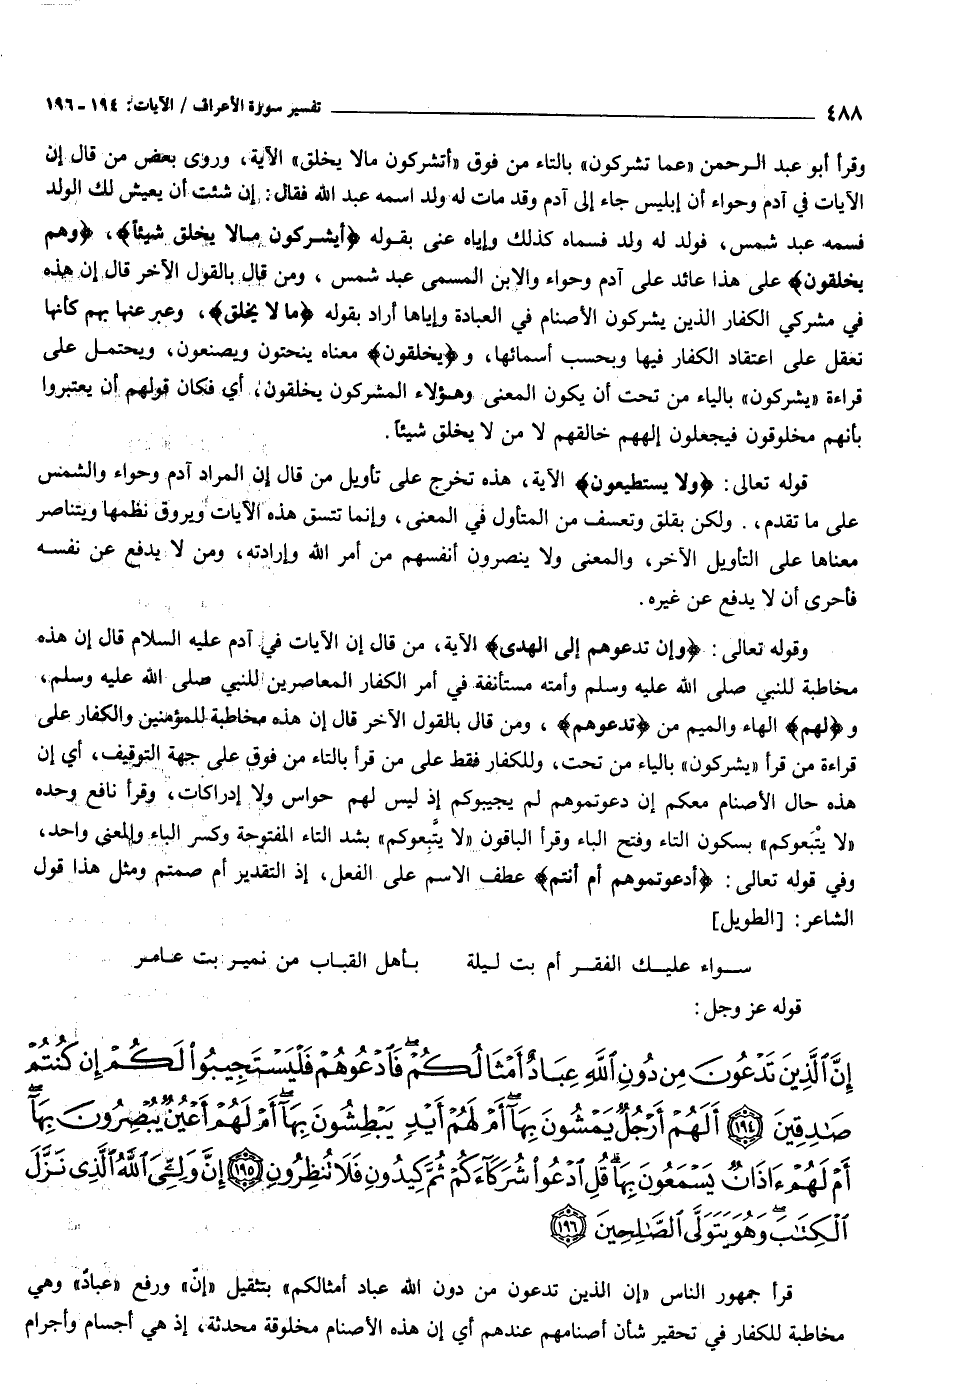 ٤٨٨ تفسير سورة الأعراف / الآيات: ١٩٤ - ١٩٦
وقرأ أبو عبد الرحمن «عما تشركون» بالتاء من فوق «أتشركون مالا يخلق» الآية، وروى بعض من قال إن
الآيات في آدم وحواء أن إبليس جاء إلى آدم وقد مات له ولد اسمه عبد الله فقال: إن شئت أن يعيش لك الولد
فسمه عبد شمس، فولد له ولد فسماه كذلك وإياه عنى بقوله ﴿أيشركون مالا يخلق شيئاً﴾، ﴿وهم
يخلقون﴾ على هذا عائد على آدم وحواء والابن المسمى عبد شمس، ومن قال بالقول الآخر قال إن هذه
في مشركي الكفار الذين يشركون الأصنام في العبادة وإياها أراد بقوله ﴿ما لا يخلق﴾، وعبر عنها بهم كأنها
تعقل على اعتقاد الكفار فيها وبحسب أسمائها، و﴿يخلقون﴾ معناه ينحتون ويصنعون، ويحتمل على
قراءة «يشركون» بالياء من تحت أن يكون المعنى وهؤلاء المشركون يخلقون، أي فكان قولهم أن يعتبروا
بأنهم مخلوقون فيجعلون إلههم خالقهم لا من لا يخلق شيئاً.
قوله تعالى: ﴿ولا يستطيعون﴾ الآية، هذه تخرج على تأويل من قال إن المراد آدم وحواء والشمس
على ما تقدم، . ولكن بقلق وتعسف من المتأول في المعنى، وإنما تتسق هذه الآيات ويروق نظمها ويتناصر
معناها على التأويل الآخر، والمعنى ولا ينصرون أنفسهم من أمر الله وإرادته، ومن لا يدفع عن نفسه
فأحرى أن لا يدفع عن غيره.
وقوله تعالى: ﴿وإن تدعوهم إلى الهدى﴾ الآية، من قال إن الآيات في آدم عليه السلام قال إن هذه
مخاطبة للنبي صلى الله عليه وسلم وأمته مستأنفة في أمر الكفار المعاصرين للنبي صلى الله عليه وسلم،
و﴿لهم﴾ الهاء والميم من ﴿تدعوهم﴾، ومن قال بالقول الآخر قال إن هذه مخاطبة للمؤمنين والكفار على
قراءة من قرأ «يشركون» بالياء من تحت، وللكفار فقط على من قرأ بالتاء من فوق على جهة التوقيف، أي إن
هذه حال الأصنام معكم إن دعوتموهم لم يجيبوكم إذ ليس لهم حواس ولا إدراكات، وقرأ نافع وحده
«لا يتْبَعوكم» بسكون التاء وفتح الباء وقرأ الباقون «لا يتَّبِعوكم» بشد التاء المفتوحة وكسر الباء والمعنى واحد،
وفي قوله تعالى: ﴿أدعوتموهم أم أنتم﴾ عطف الاسم على الفعل، إذ التقدير أم صمتم ومثل هذا قول
الشاعر: [الطويل]
سواء عليك الفقر أم بت ليلة بأهل القباب من نمير بت عامر
قوله عز وجل:
إِنَّ ٱلَّذِينَ تَدْعُونَ مِن دُونِ ٱللَّهِ عِبَادٌ أَمْثَالُكُمْ ۖ فَٱدْعُوهُمْ فَلْيَسْتَجِيبُوا۟ لَكُمْ إِن كُنتُمْ
صَٰدِقِينَ ﴿١٩٤﴾ أَلَهُمْ أَرْجُلٌ يَمْشُونَ بِهَآ ۖ أَمْ لَهُمْ أَيْدٍ يَبْطِشُونَ بِهَآ ۖ أَمْ لَهُمْ أَعْيُنٌ يُبْصِرُونَ بِهَآ ۖ
أَمْ لَهُمْ ءَاذَانٌ يَسْمَعُونَ بِهَا ۗ قُلِ ٱدْعُوا۟ شُرَكَآءَكُمْ ثُمَّ كِيدُونِ فَلَا تُنظِرُونِ ﴿١٩٥﴾ إِنَّ وَلِـِّۧىَ ٱللَّهُ ٱلَّذِى نَزَّلَ
ٱلْكِتَٰبَ ۖ وَهُوَ يَتَوَلَّى ٱلصَّٰلِحِينَ ﴿١٩٦﴾
قرأ جمهور الناس «إن الذين تدعون من دون الله عباد أمثالكم» بتثقيل «إنّ» ورفع «عبادٌ» وهي
مخاطبة للكفار في تحقير شأن أصنامهم عندهم أي إن هذه الأصنام مخلوقة محدثة، إذ هي أجسام وأجرام